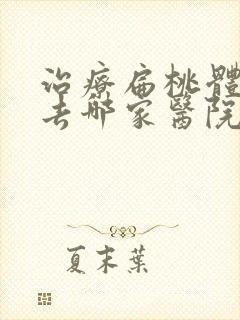 治療扁桃體
去哪家醫院
夏末葉